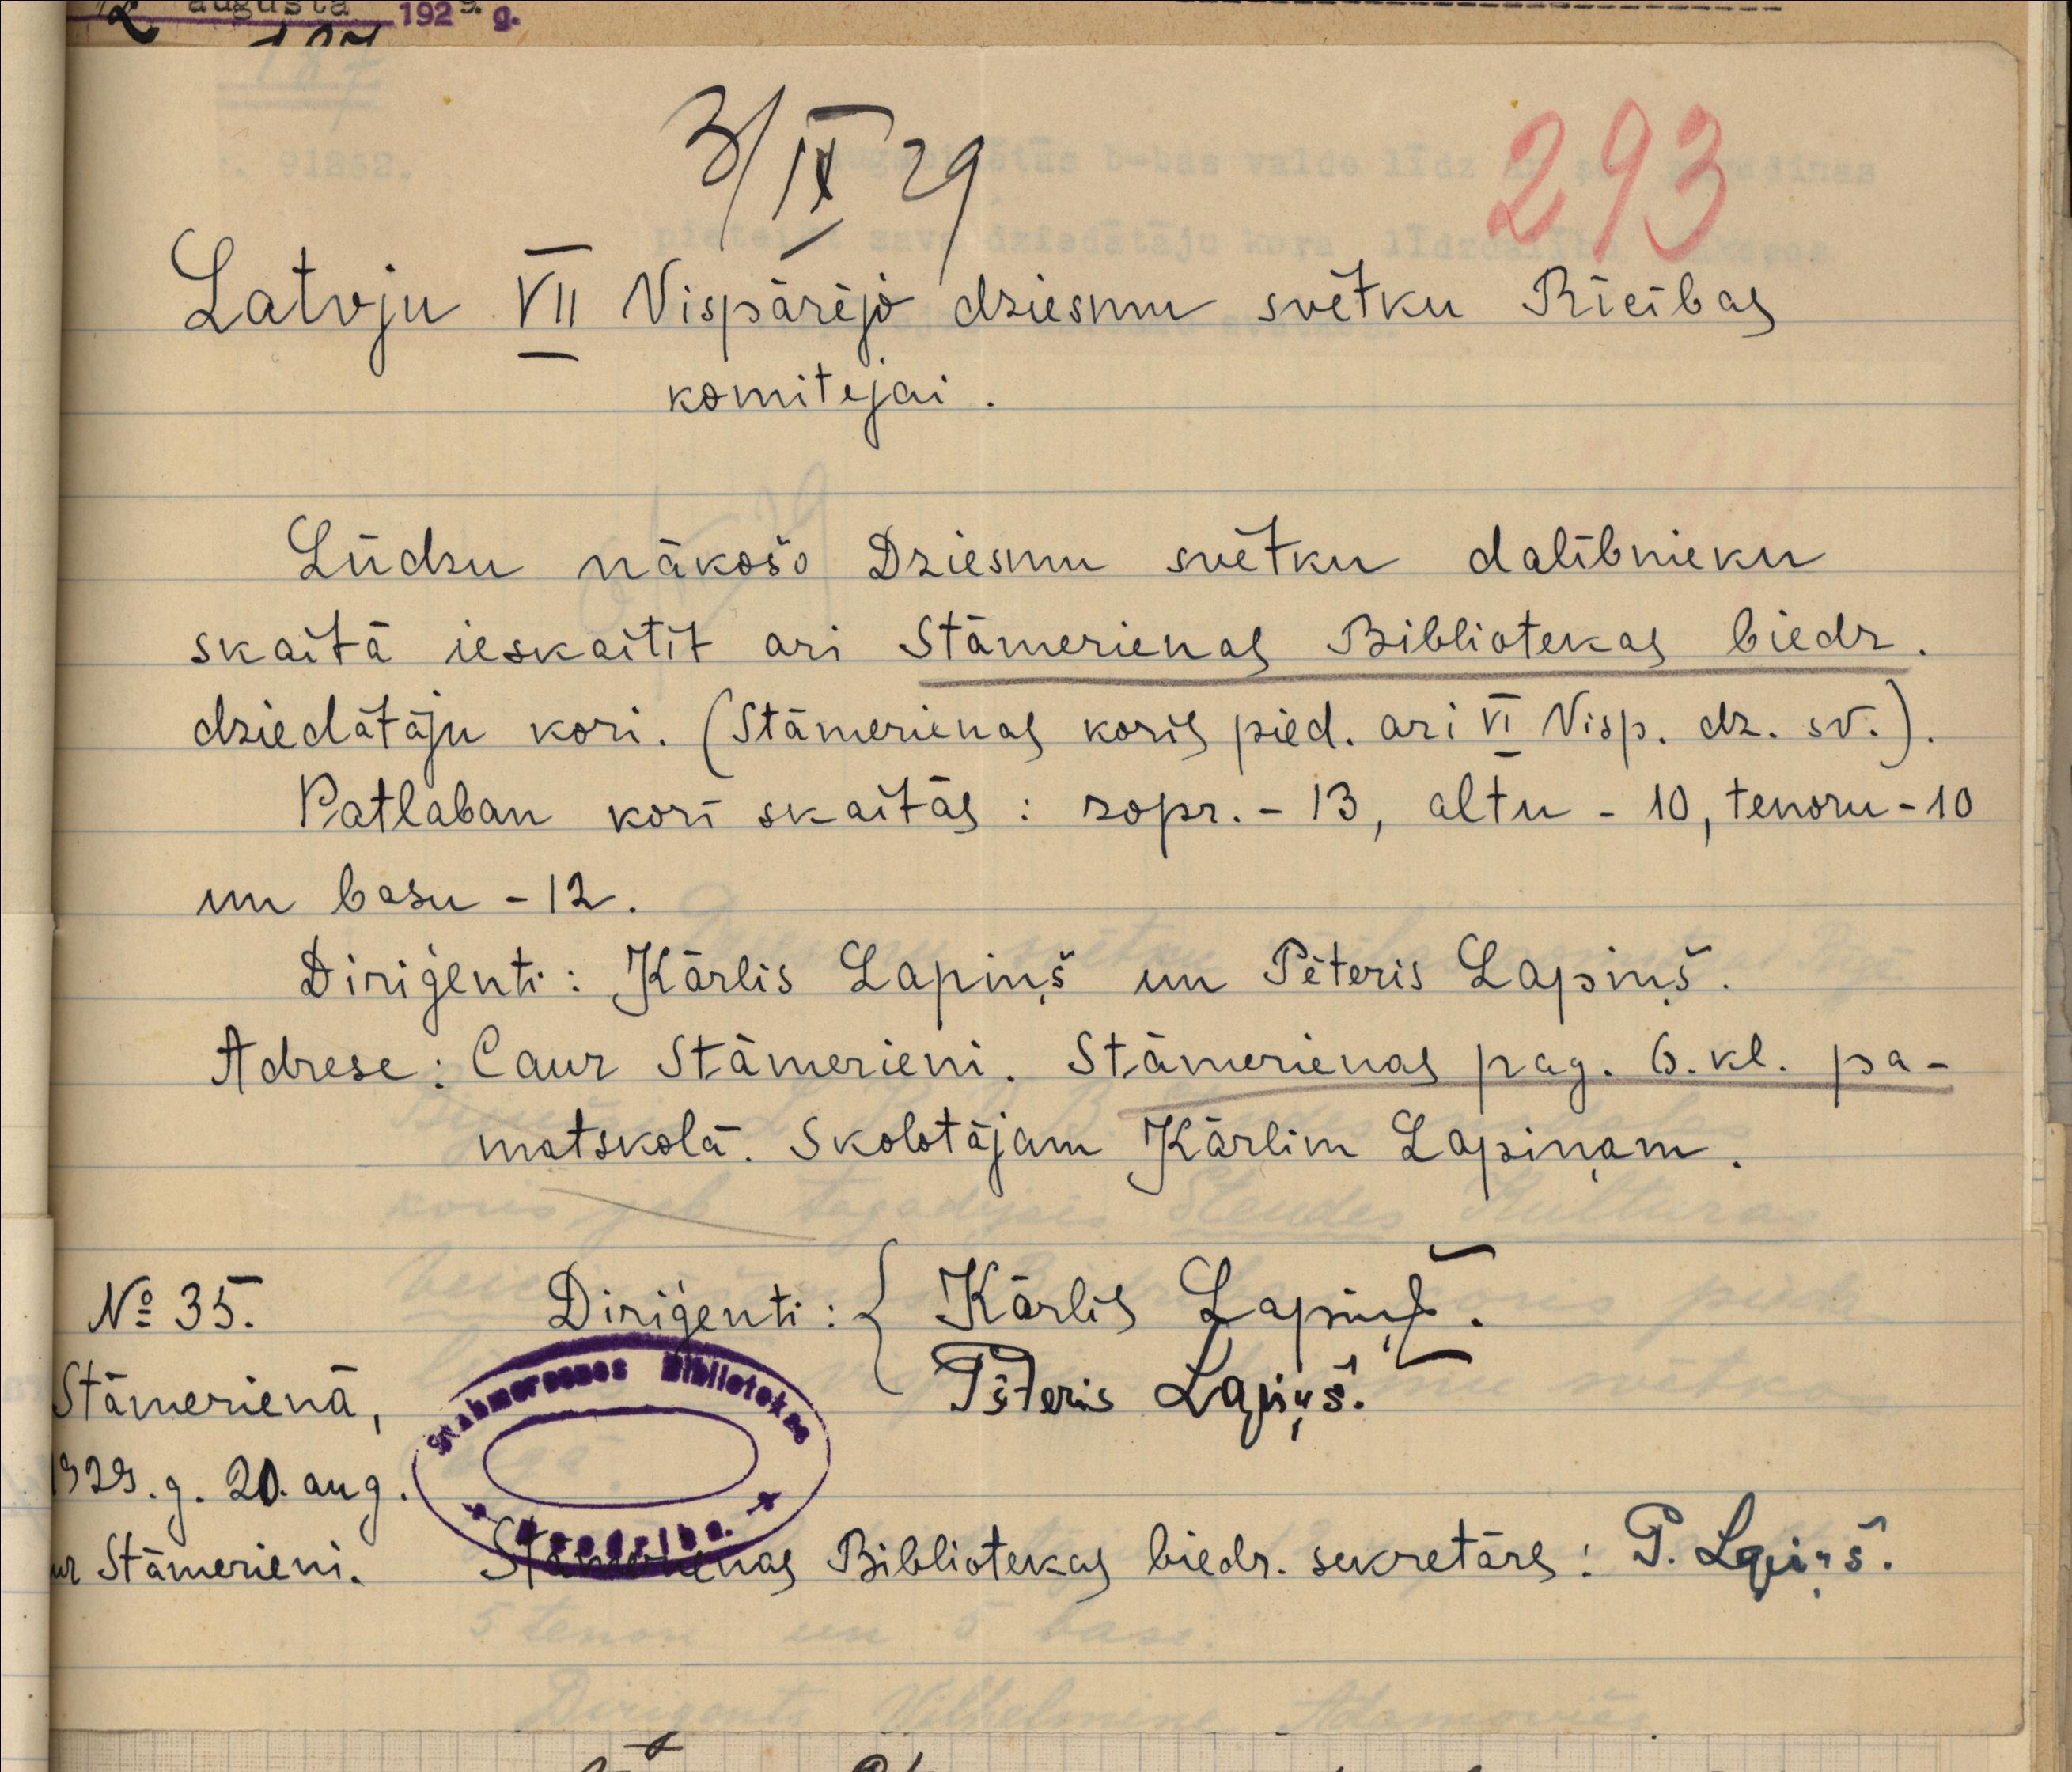 augusta 1929. g.
3/IX 29
293
Latvju VII Vispārējo dziesmu svētku Rīcības
komitejai.
Lūdzu nākošo Dziesmu svētku dalībnieku
skaitā ieskaitīt arī Stāmerienas Bibliotekas biedr.
dziedātāju kori. (Stāmerienas koris pied. arī VI Visp. dz. sv.).
Patlaban korī skaitās: sopr. - 13, altu - 10, tenoru - 10
un basu - 12.
Diriģenti: Kārlis Lapiņš un Pēteris Lapiņš.
Adrese: Caur Stāmerieni. Stāmerienas pag. 6. kl. pa-
matskolā. Skolotājam Kārlim Lapiņam.
№ 35. Diriģenti: { Kārlis Lapiņš.
Stāmerienā, Pēteris Lapiņš.
1929. g. 20. aug.
Stahmereenas Bibliotekas
Beedriba.
ur Stāmerieni. Stāmerienas Bibliotekas biedr. sekretārs: P. Lapiņš.